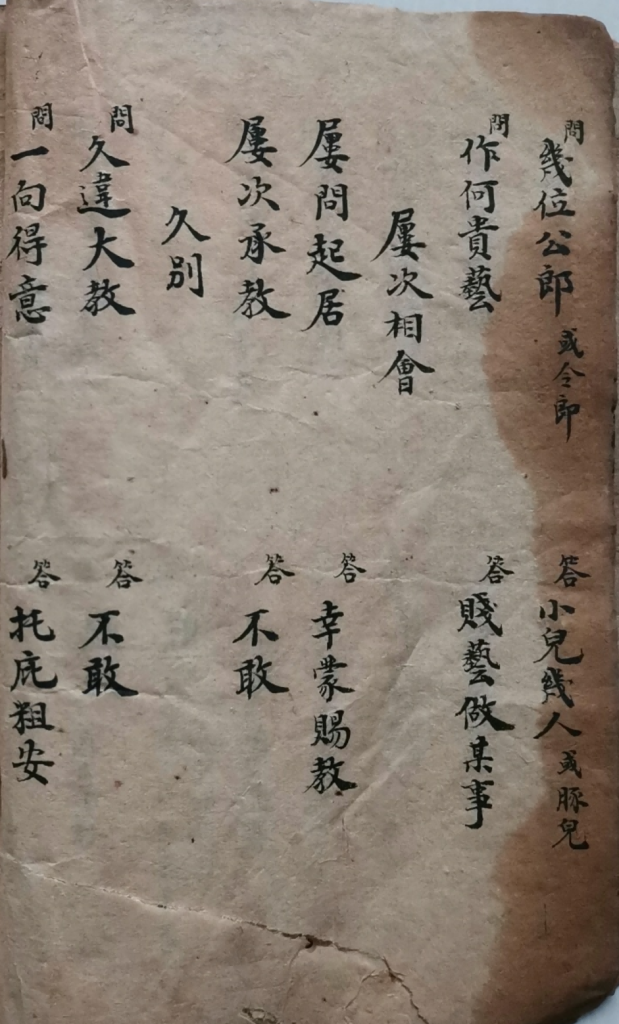 問 幾位公郎 或令郎 答 小兒幾人 或豚兒
問 作何貴藝 答 賤藝做某事
屢次相會
屢問起居 答 幸蒙賜教
屢次承教 答 不敢
久別
問 久違大教 答 不敢
問 一向得意 答 托庇粗安